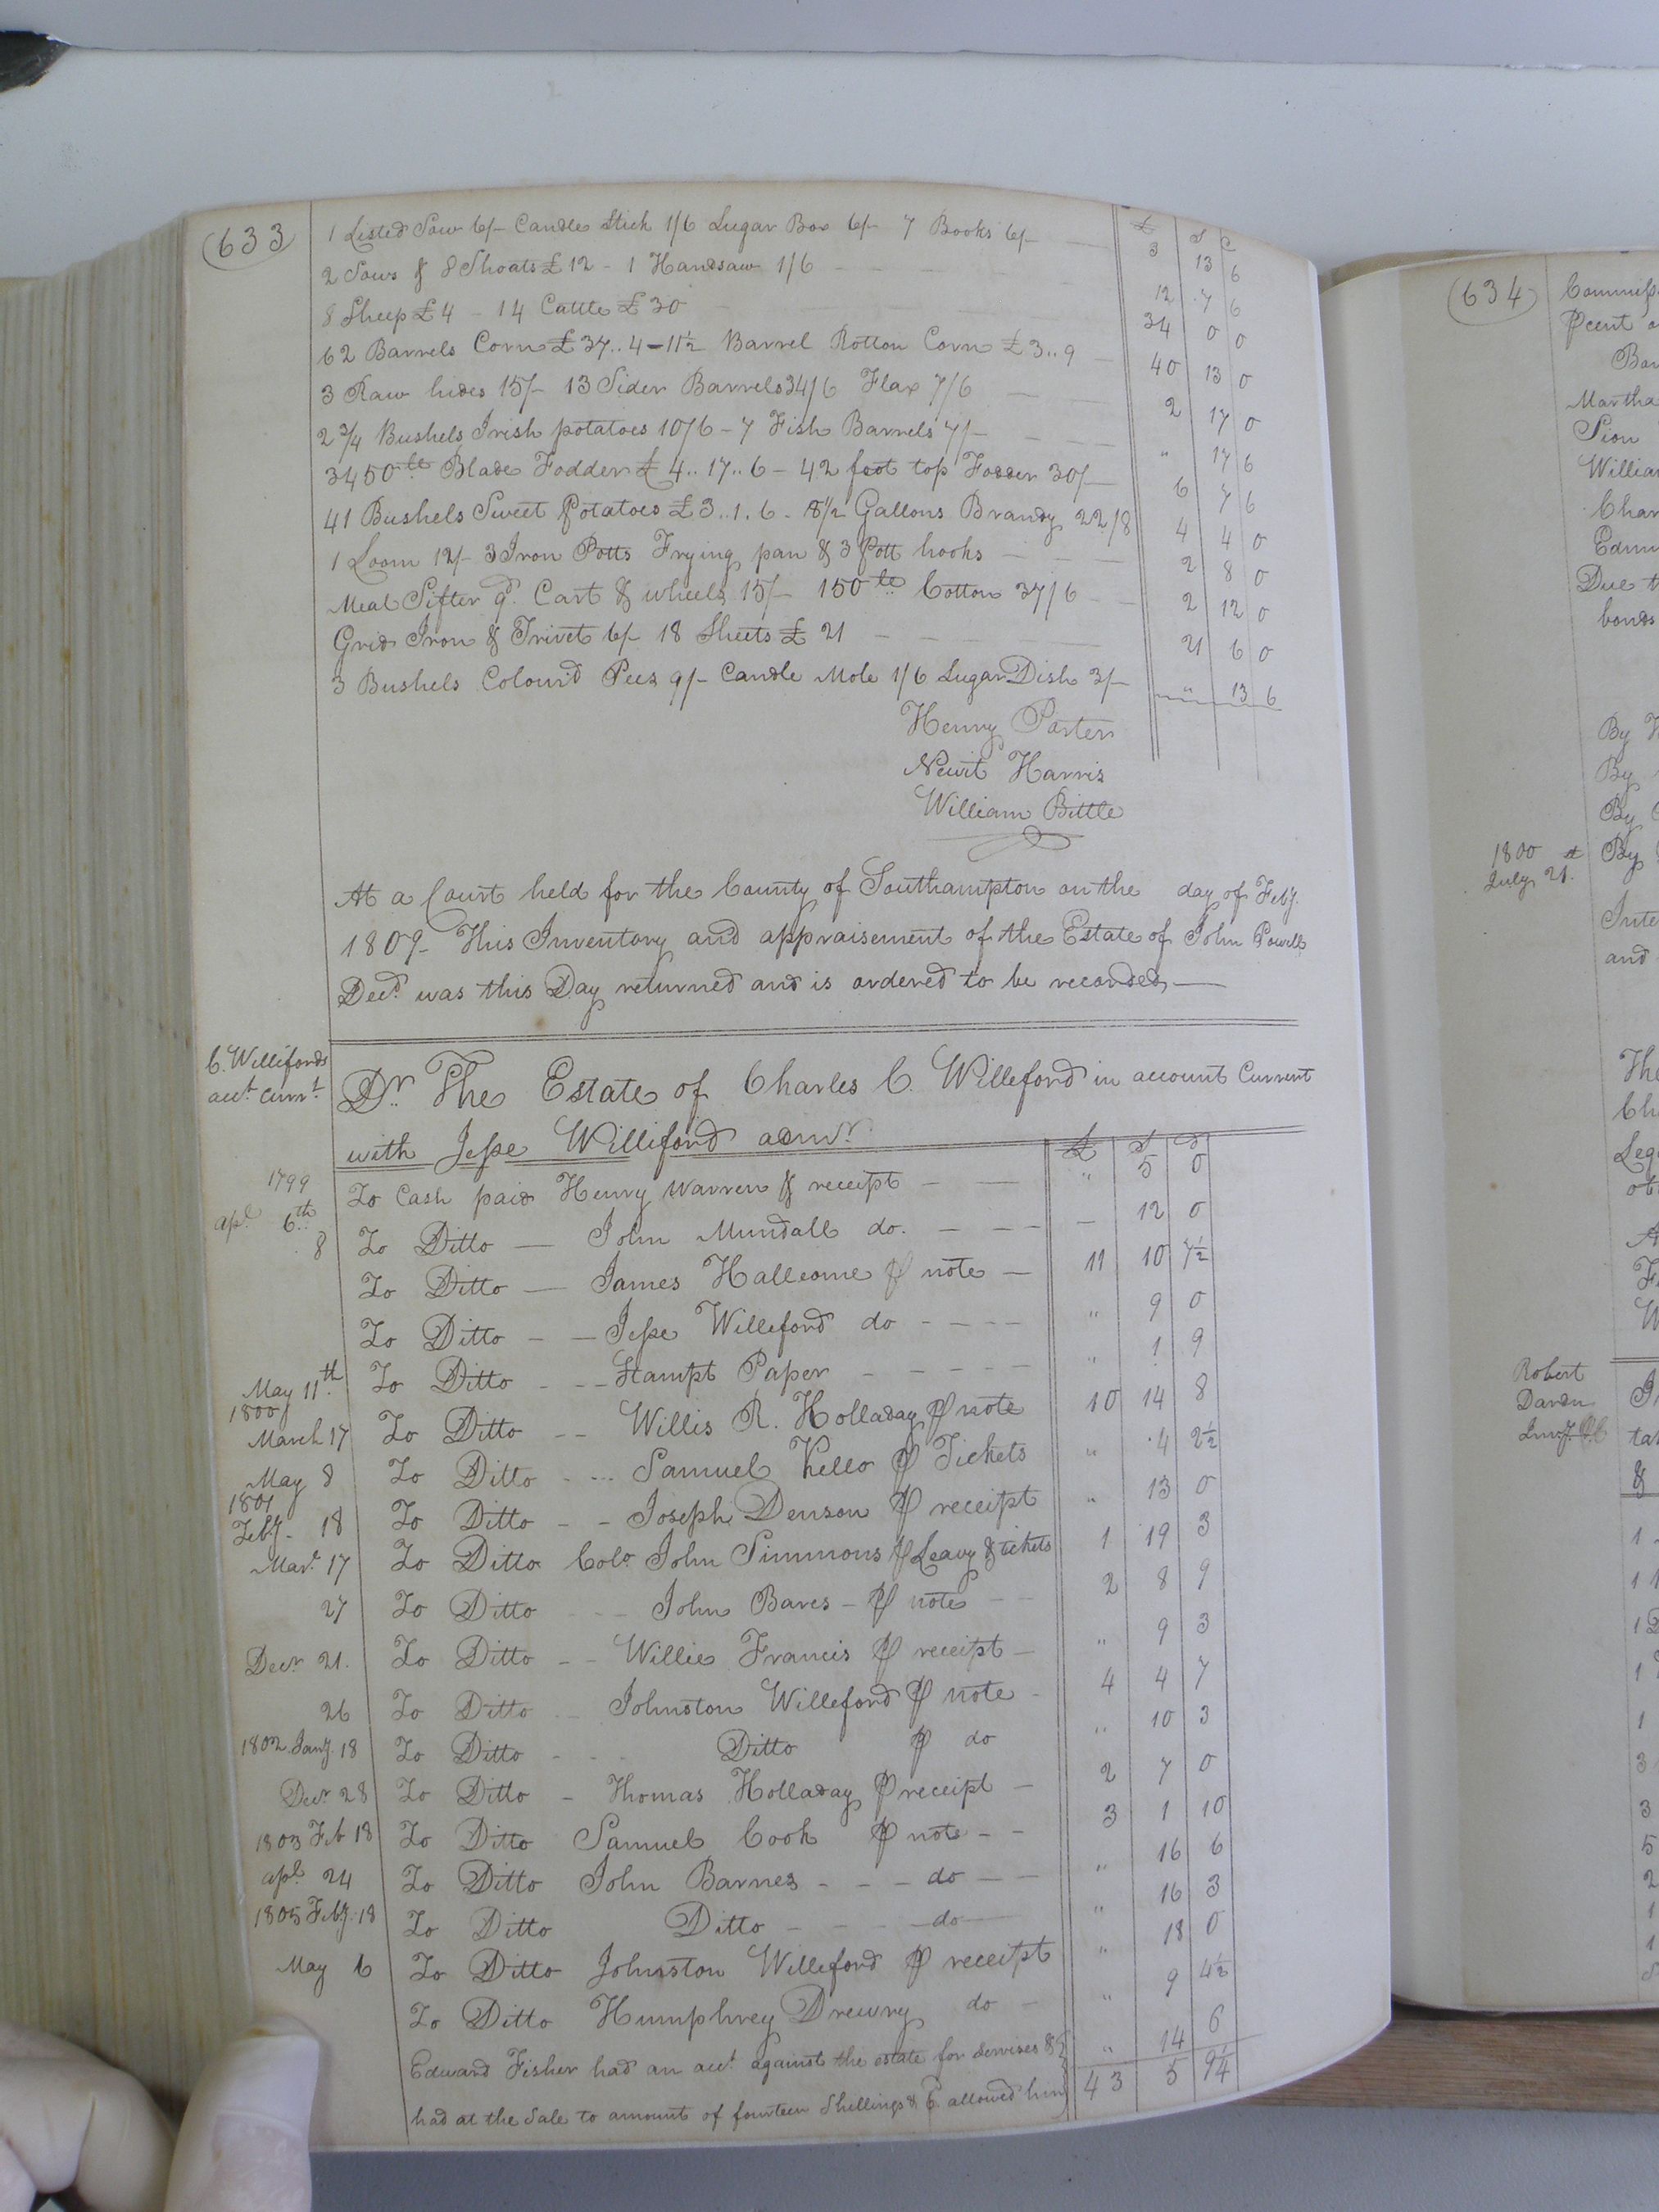 633
1 Listed Sow 6/- Candle Stick 1/6 Sugar Box 6/- 7 Books 6/- £ 3 S 13 6
2 Sows & 8 Shoats £12 - 1 Handsaw 1/6 12 7 6
8 Sheep £4 - 14 Cattle £30 34 0 0
62 Barrels Corn £37..4 - 11½ Barrel Rotton Corn £3..9 40 13 0
3 Raw hides 15/- 13 Sider Barrels 34/6 Flax 7/6 2 17 0
2¾ Bushels Irish potatoes 10/6 - 7 Fish Barrels 7/- " 17 6
3450 lb Blade Fodder £4..17..6 - 42 foot top Fodder 30/- 6 7 6
41 Bushels Sweet Potatoes £3..1.6 - 8½ Gallons Brandy 22/8 4 4 0
1 Loom 12/- 3 Iron Potts Frying pan & 3 Pott hooks 2 8 0
Meal Sifter 9d. Cart & wheels 15/- 150 lb Cotton 37/6 2 12 0
Grid Iron & Trivet 6/- 18 Sheets £21 21 6 0
3 Bushels Colourd Pees 9/- Candle Mole 1/6 Sugar Dish 3/- " 13 6
Henry Porter
Newit Harris
William Bittle
At a Court held for the County of Southampton on the day of Feby.
1809 - This Inventory and appraisement of the Estate of John Powell
Decd. was this Day returned and is ordered to be recorded
C. Willifords
acct. Currt.
Dr. The Estate of Charles C. Williford in account Current
with Jesse Williford admr.
£ S d
1799
apl. 6th To Cash paid Henry Warren & receipt " 5 0
8 To Ditto John Mundall do. 12 0
To Ditto James Hallcome ⅌ note 11 10 7½
To Ditto Jesse Williford do " 9 0
May 11th To Ditto Stampt Paper " 1 9
1800
March 17 To Ditto Willis R. Holladay ⅌ note 10 14 8
May 8 To Ditto Samuel Kello ⅌ Tickets " 4 2½
1801
Feby. 18 To Ditto Joseph Denson ⅌ receipt " 13 0
Mar. 17 To Ditto Colo. John Simmons ⅌ Leavy & tickets 1 19 3
27 To Ditto John Bares ⅌ note 2 8 9
Decr 21. To Ditto Willie Francis ⅌ receipt " 9 3
26 To Ditto Johnston Williford ⅌ note 4 4 7
1802 Jany. 18 To Ditto Ditto ⅌ do " 10 3
Decr 28 To Ditto Thomas Holladay ⅌ receipt 2 7 0
1803 Feb 18 To Ditto Samuel Cook ⅌ note 3 1 10
apl. 24 To Ditto John Barnes do " 16 6
1805 Feby. 18 To Ditto Ditto do " 16 3
May 6 To Ditto Johnston Williford ⅌ receipt " 18 0
To Ditto Humphrey Drewry do " 9 4½
Edward Fisher had an acct. against the estate for Services & " 14 6
had at the Sale to amount of fourteen Shillings & 6 allowed him 43 5 9¼
634
Commiss
⅌cent o
Martha
Sion
William
Char
Edmu
Due t
bonds
By
By
By
1800
July 21. By
Inte
and
The
Ch
Leg
Robert
Darden